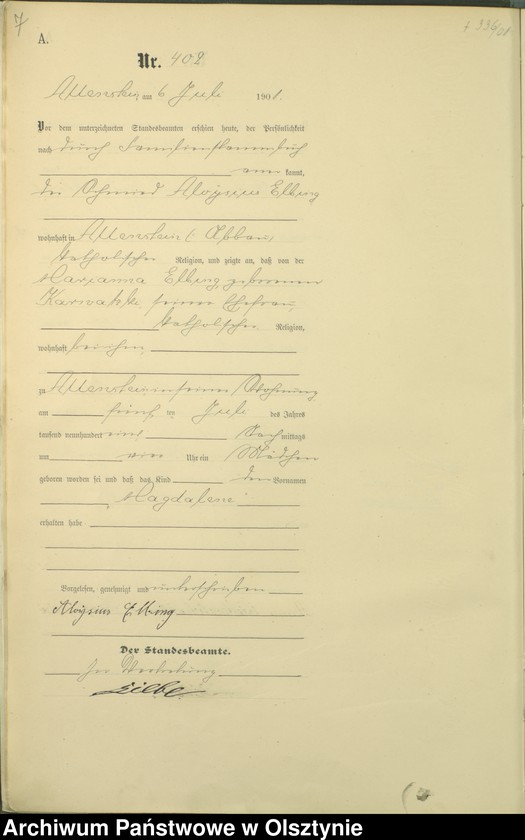 7
7 336/01
A.
Nr. 408
Allenstein am 6 Juli 1901.
Vor dem unterzeichneten Standesbeamten erschien heute, der Persönlichkeit
nach durch Familienstammbuch
aner kannt,
der Schmied Aloysius Elbing
wohnhaft in Allenstein (Abbau)
katholischer Religion, und zeigte an, daß von der
Marianna Elbing geborenen
seiner Ehefrau,
katholischer Religion,
wohnhaft bei ihm,
zu Allenstein in seiner Wohnung
am fünf ten Juli des Jahres
tausend neunhundert eins Nach mittags
um vier Uhr ein Mädchen
geboren worden sei und daß das Kind den Vornamen
Magdalene
erhalten habe
Vorgelesen, genehmigt und unterschrieben
Aloysius Elbing
Der Standesbeamte.
In Vertretung
Archiwum Państwowe w Olsztynie